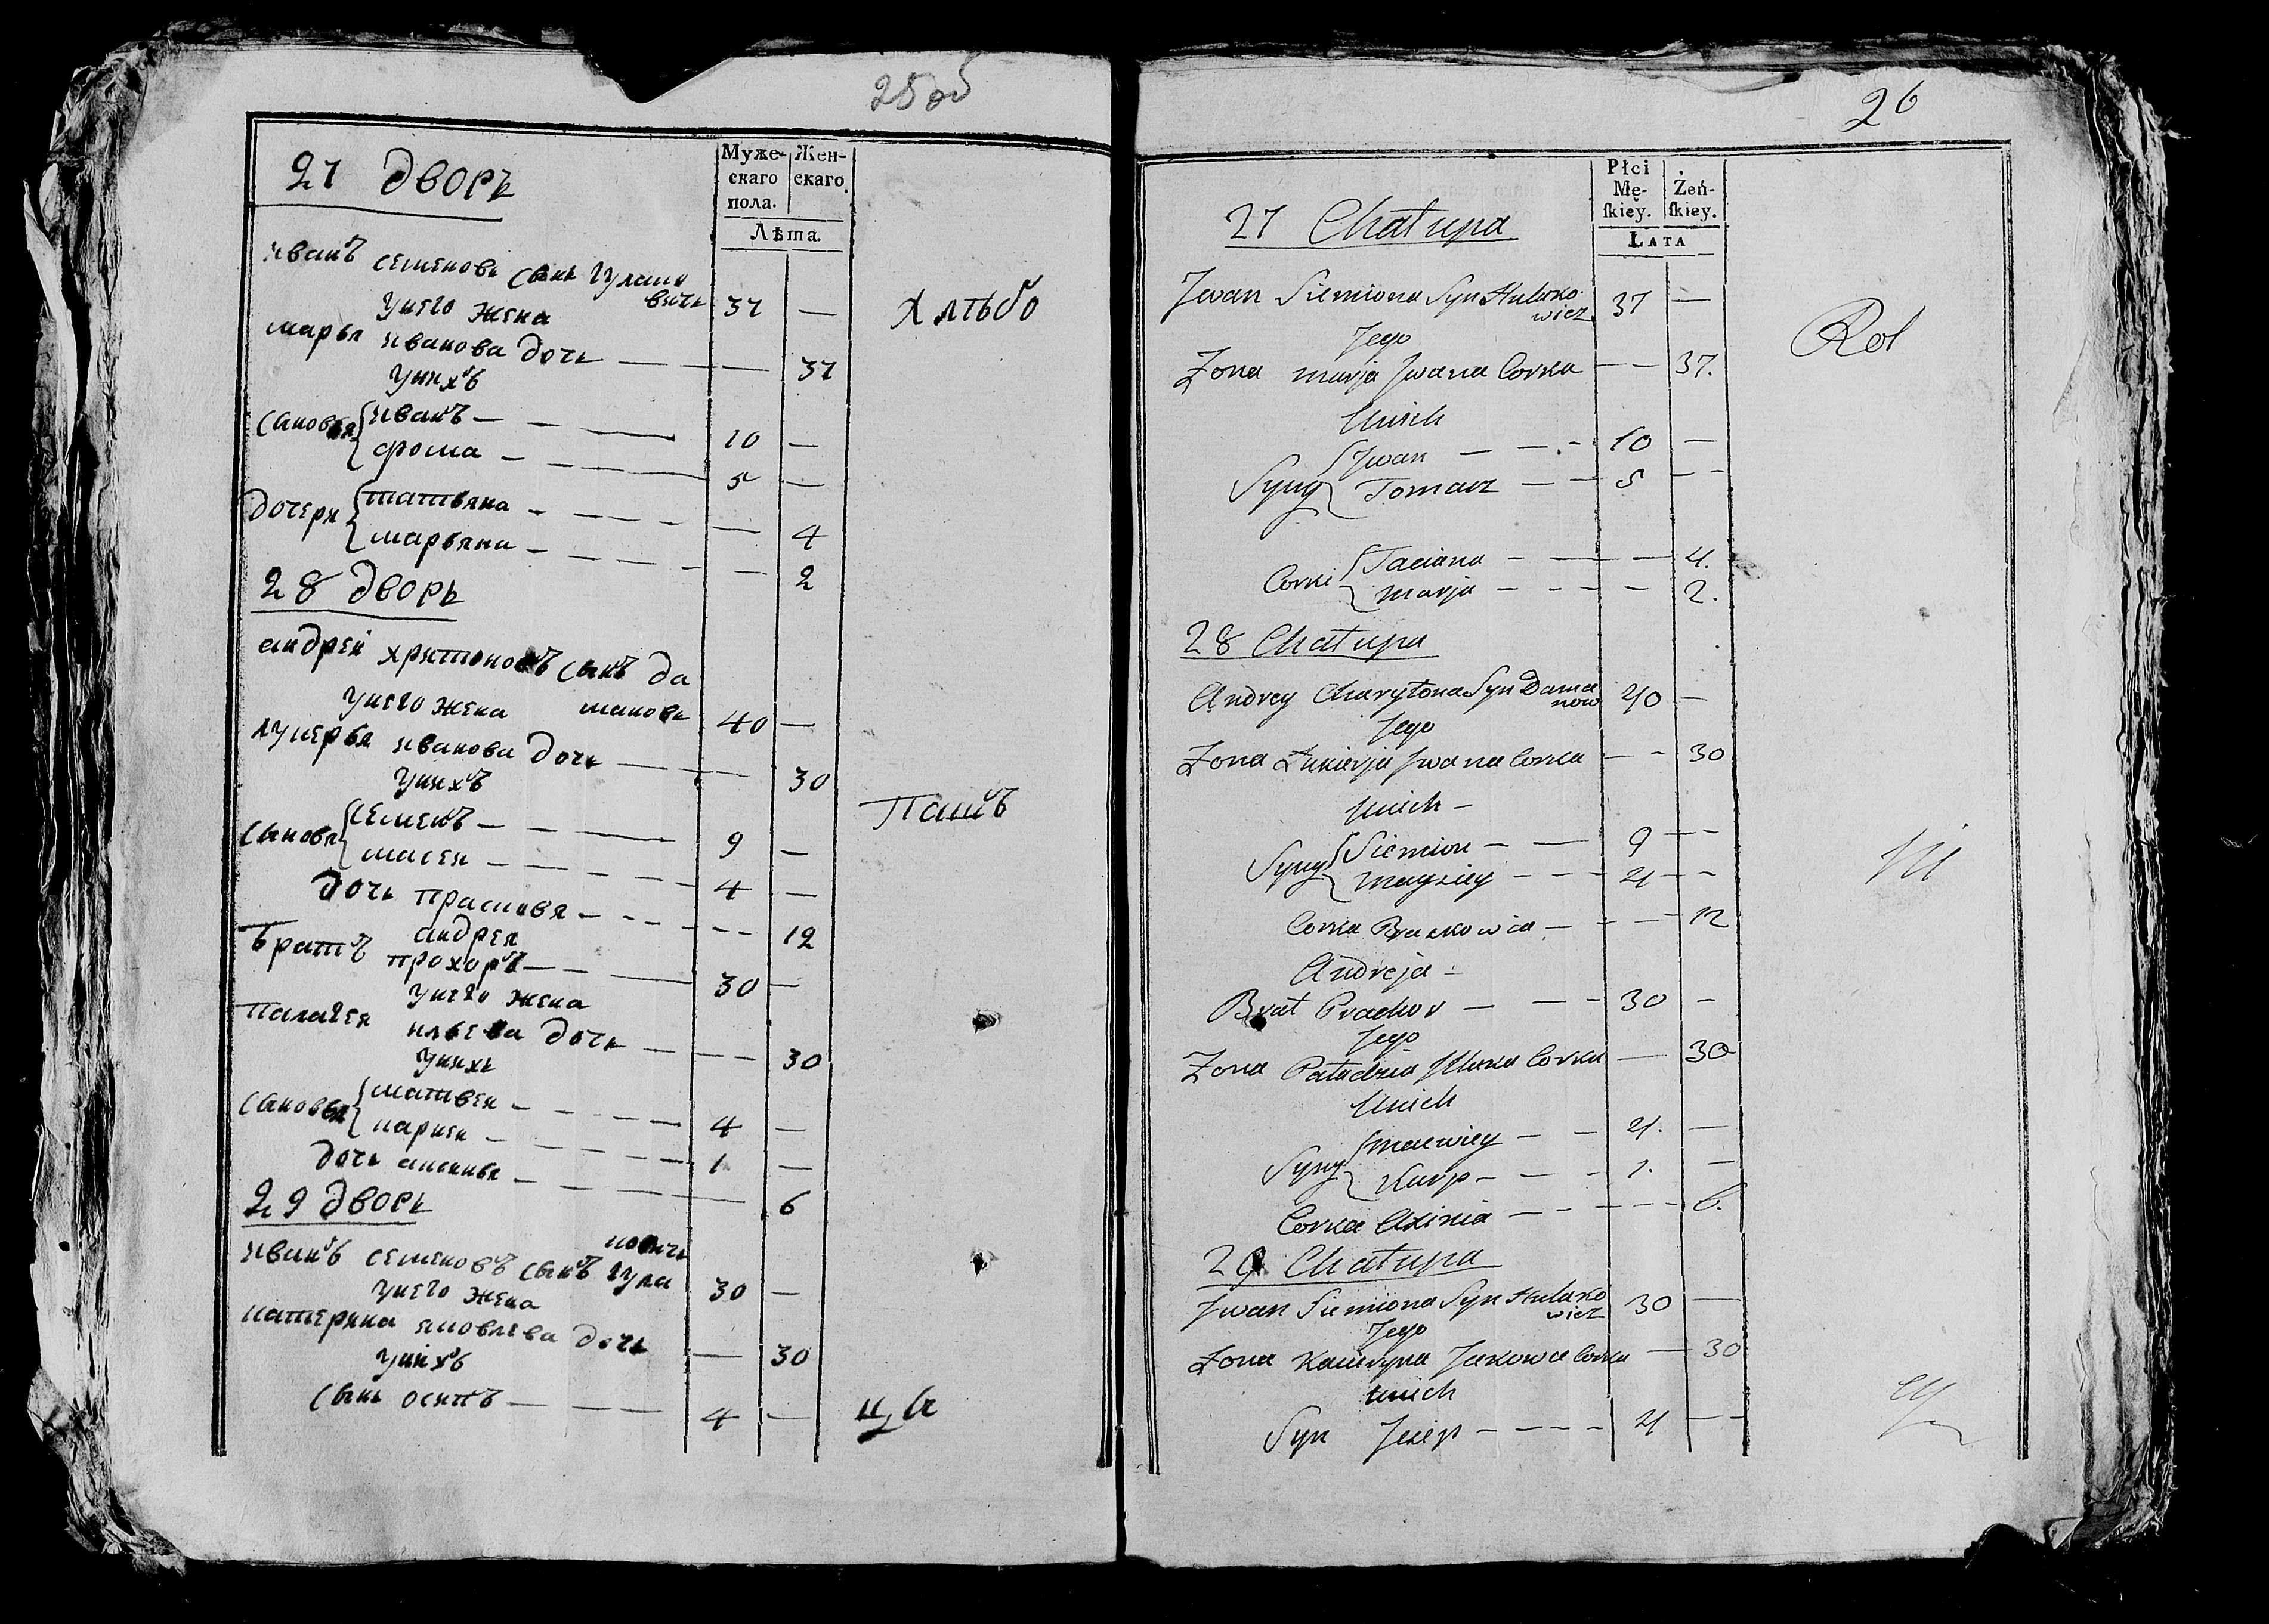 25 об
27 дворъ
Муже-
скаго
пола.
Жен-
скаго.
Лѣта.
иванъ семеновъ сынъ гулако
вичь 37 —
Хлѣбо
унего жена
марья иванова дочь — — 37
унихъ
сыновья { иванъ — — — 10 —
фома — — — 5 —
дочери { татьяна — — — — 4
марьяна — — — — 2
28 дворъ
андрей хритоновъ сынъ да
мановъ 40 —
унего жена
лукерья иванова дочь — — 30
унихъ
Паш
сыновья { семенъ — — — 9 —
масей — — — 4 —
дочь прасковья — — — 12
андрея
братъ прохоръ — — 30 —
унего жена
палагея ильева дочь — — 30
унихъ
сыновья { матвей — — — 4 —
карпей — — — 1 —
дочь аксинья — — — 6
29 дворъ
иванъ семеновъ сынъ гула
ковичь 30 —
унего жена
катерина яковлева дочь — 30
унихъ
сынъ осипъ — — — 4 —
26
Płci
Mę-
skiey.
Żeń-
skiey.
LATA
27 Chałupa
Jwan Siemiona Syn Hulako
wicz 37 —
Rol
Jego
Zona marja Jwana Corka — — 37.
Unich
Syny { Jwan — — — 10 —
Tomasz — — 5 — —
Corki { Taciana — — — 4.
marja — — — — 2.
28 Chałupa
Andrey Charytona Syn Dama
now 40 —
Jego
Zona Łukierja Jwana Corka — — 30
Unich —
Syny { Siemion — — 9 — —
maysiey — — — 4 — —
Corka Praskowia — — — 12
Andreja —
Brat Prachor — — — 30 —
Jego
Zona Paładzia Corka — 30
Unich
Syny { maćwiey — — 4. —
Karp — — — 1. —
Corka Axinia — — — — 6.
29 Chałupa
Jwan Siemiona Syn Hulako
wicz 30 —
Jego
Zona Kacieryna Jakowa Corka — 30
unich
Syn Jozep — — — — 4 — —